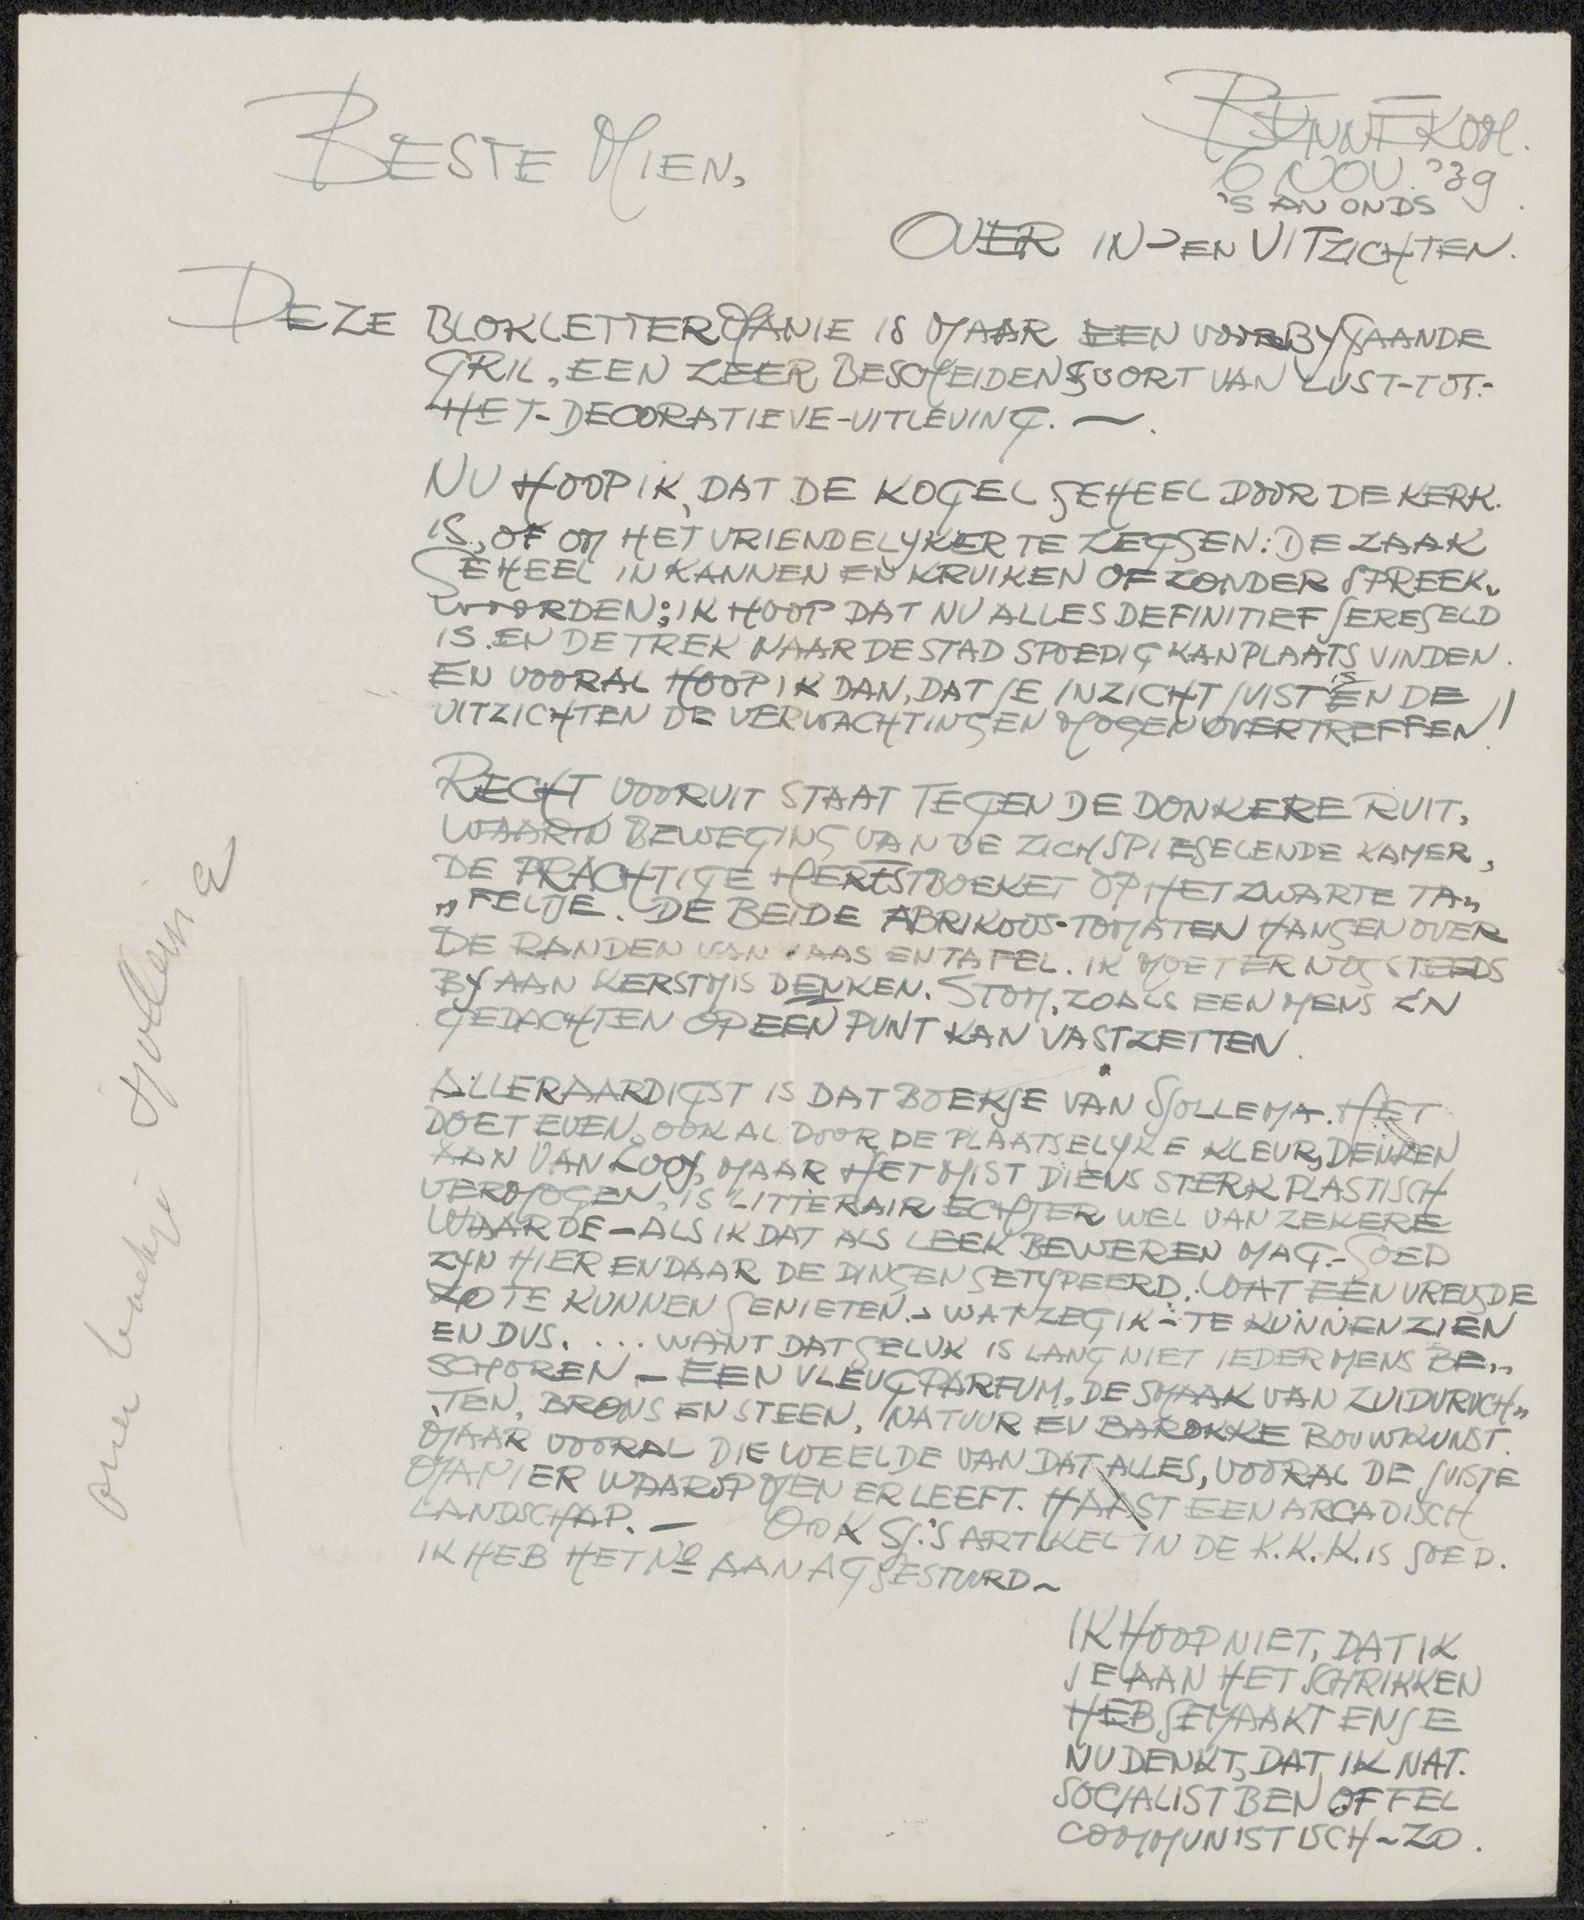 BESTE MIEN,
BENNEKOM.
6 NOV. '39
'S AVONDS.
OVER IN- EN UITZICHTEN.
DEZE BLOKLETTERMANIE IS MAAR EEN VOORBYGAANDE
GRIL, EEN ZEER BESCHEIDEN SOORT VAN LUST-TOT-
HET-DECORATIEVE-UITLEVING. —.
NU HOOP IK, DAT DE KOGEL GEHEEL DOOR DE KERK
IS, OF OM HET VRIENDELYKER TE ZEGGEN: DE ZAAK
GEHEEL IN KANNEN EN KRUIKEN OF ZONDER SPREEK„
WOORDEN: IK HOOP DAT NU ALLES DEFINITIEF GEREGELD
IS. EN DE TREK NAAR DE STAD SPOEDIG KAN PLAATS VINDEN.
EN VOORAL HOOP IK DAN, DAT JE INZICHT JUIST IS EN DE
UITZICHTEN DE VERWACHTINGEN MOGEN OVERTREFFEN!
RECHT VOORUIT STAAT TEGEN DE DONKERE RUIT,
WAARIN BEWEGING VAN DE ZICH SPIEGELENDE KAMER,
DE PRACHTIGE HERFSTBOEKET OP HET ZWARTE TA„
„FELTJE. DE BEIDE ABRIKOOS-TOMATEN HANGEN OVER
DE RANDEN VAN VAAS EN TAFEL. IK MOET ER NOG STEEDS
BY AAN KERSTMIS DENKEN. STOM, ZOALS EEN MENS Z'N
GEDACHTEN OP EEN PUNT KAN VASTZETTEN.
ALLERAARDIGST IS DAT BOEKJE VAN SJOLLEMA. HET
DOET EVEN, OOK AL DOOR DE PLAATSELYKE KLEUR, DENKEN
AAN VAN LOOY, MAAR HET MIST DIENS STERK PLASTISCH
VERMOGEN, IS LITTERAIR ECHTER WEL VAN ZEKERE
WAARDE – ALS IK DAT ALS LEEK BEWEREN MAG. – GOED
ZYN HIER EN DAAR DE DINGEN GETYPEERD. WAT EEN VREUGDE
ZO TE KUNNEN GENIETEN. – WAT ZEG IK – TE KUNNEN ZIEN
EN DUS.... WANT DAT GELUK IS LANG NIET IEDER MENS BE„
SCHOREN – EEN VLEUG PARFUM, DE SMAAK VAN ZUIDVRUCH„
„TEN, BRONS EN STEEN, NATUUR EN BAROKKE BOUWKUNST.
MAAR VOORAL DIE WEELDE VAN DAT ALLES, VOORAL DE JUISTE
MANIER WAAROP MEN ER LEEFT. HAAST EEN ARCADISCH
LANDSCHAP. — OOK SJ.'S ARTIKEL IN DE K.K.K. IS GOED.
IK HEB HET No AAN AG GESTUURD ~
IK HOOP NIET, DAT IK
JE AAN HET SCHRIKKEN
HEB GEMAAKT EN JE
NU DENKT, DAT IK NAT.
SOCIALIST BEN OF FEL
COMMUNISTISCH ~ ZO.
over boekje Sjollema